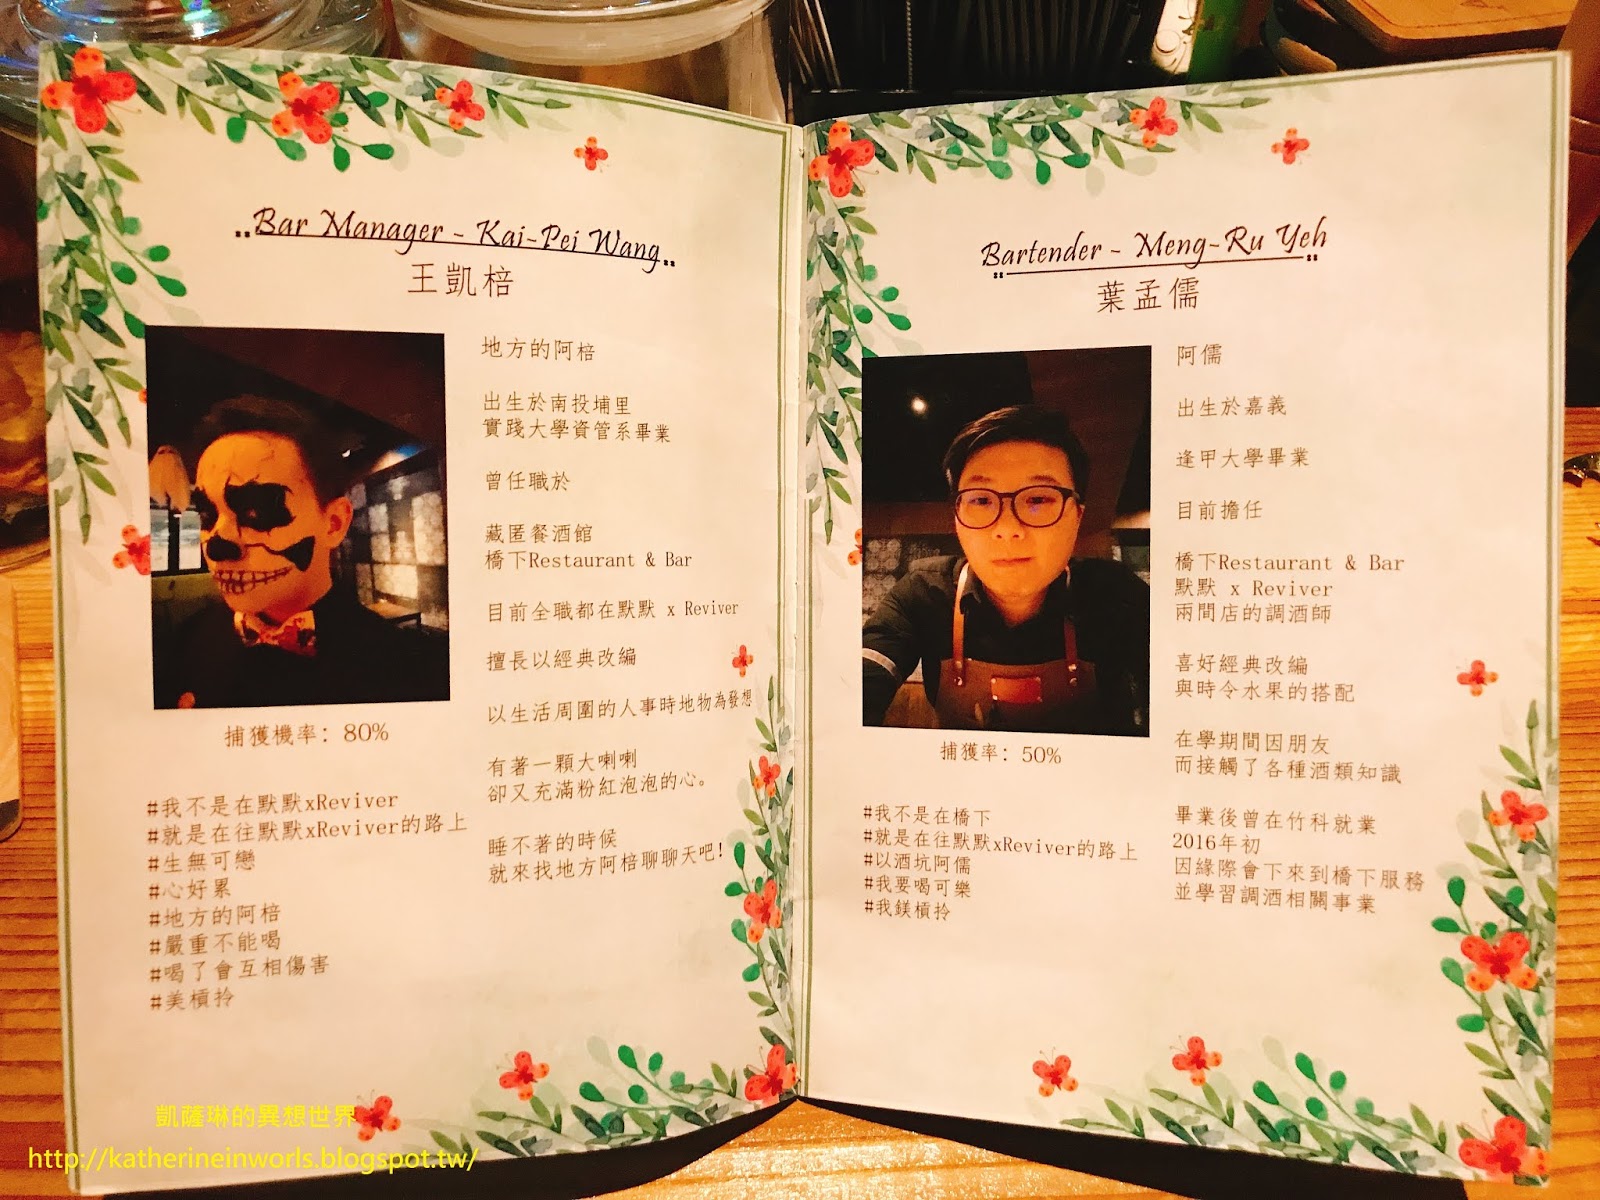 Bar Manager - Kai-Pei Wang
王凱棓
地方的阿棓
出生於南投埔里
實踐大學資管系畢業
曾任職於
藏匿餐酒館
橋下Restaurant & Bar
目前全職都在默默 x Reviver
擅長以經典改編
以生活周圍的人事時地物為發想
有著一顆大喇喇
卻又充滿粉紅泡泡的心。
睡不著的時候
就來找地方阿棓聊聊天吧!
捕獲機率: 80%
#我不是在默默xReviver
#就是在往默默xReviver的路上
#生無可戀
#心好累
#地方的阿棓
#嚴重不能喝
#喝了會互相傷害
#美槓拎
Bartender - Meng-Ru Yeh
葉孟儒
阿儒
出生於嘉義
逢甲大學畢業
目前擔任
橋下Restaurant & Bar
默默 x Reviver
兩間店的調酒師
喜好經典改編
與時令水果的搭配
在學期間因朋友
而接觸了各種酒類知識
畢業後曾在竹科就業
2016年初
因緣際會下來到橋下服務
並學習調酒相關事業
捕獲率: 50%
#我不是在橋下
#就是在往默默xReviver的路上
#以酒坑阿儒
#我要喝可樂
#我鎂槓拎
凱薩琳的異想世界
http://katherineinworls.blogspot.tw/